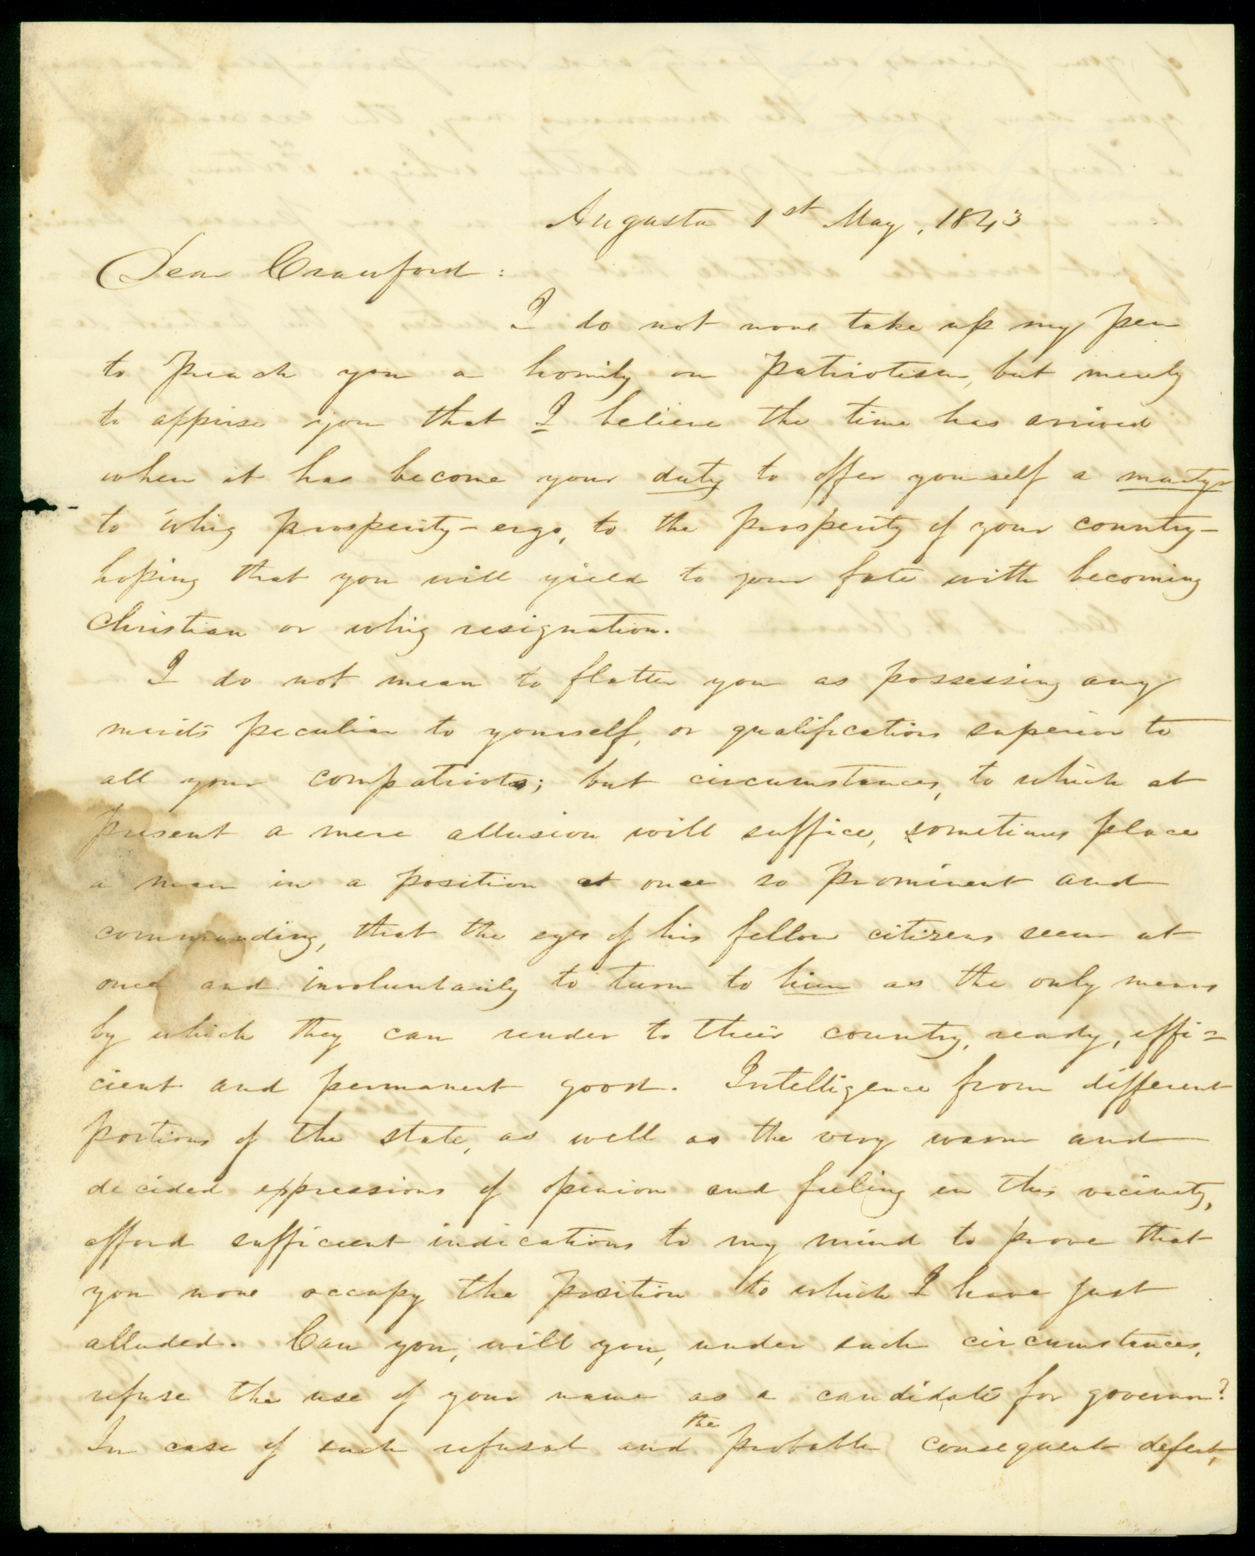 Augusta 1st May, 1843
Dear Crawford:
I do not now take up my pen
to preach you a homily on patriotism, but merely
to apprise you that I believe the time has arrived
when it has become your duty to offer yourself a martyr
to Whig prosperity - ergo, to the prosperity of your country -
hoping that you will yield to your fate with becoming
Christian or Whig resignation.
I do not mean to flatter you as possessing any
merits peculiar to yourself, or qualifications superior to
all your compatriots; but circumstances, to which at
present a mere allusion will suffice, sometimes place
a man in a position at once so prominent and
commanding, that the eyes of his fellow citizens seem at
once and involuntarily to turn to him as the only means
by which they can render to their country, ready, effi=
cient and permanent good. Intelligence from different
portions of the state, as well as the very warm and
decided expressions of opinion and feeling in this vicinity,
afford sufficient indications to my mind to prove that
you now occupy the position to which I have just
alluded. Can you, will you, under such circumstances,
refuse the use of your name as a candidate for governor?
In case of such refusal and the probable consequent defeat,